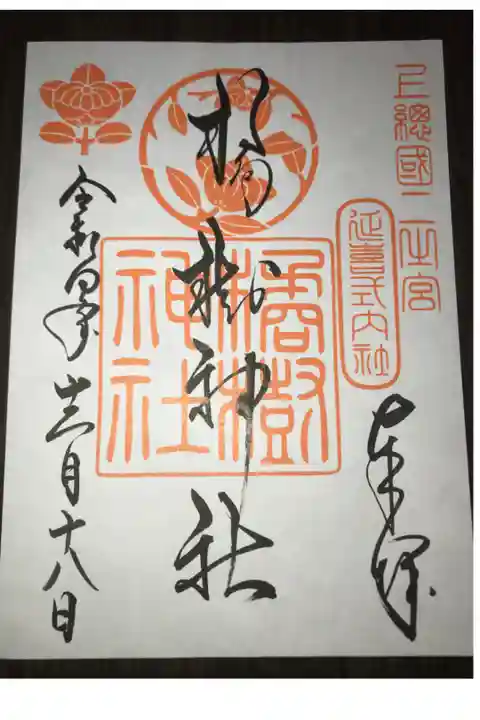 上總國二之宮
延喜式内社
奉拝
橘樹神社
橘樹神社
令和四年 十二月十八日